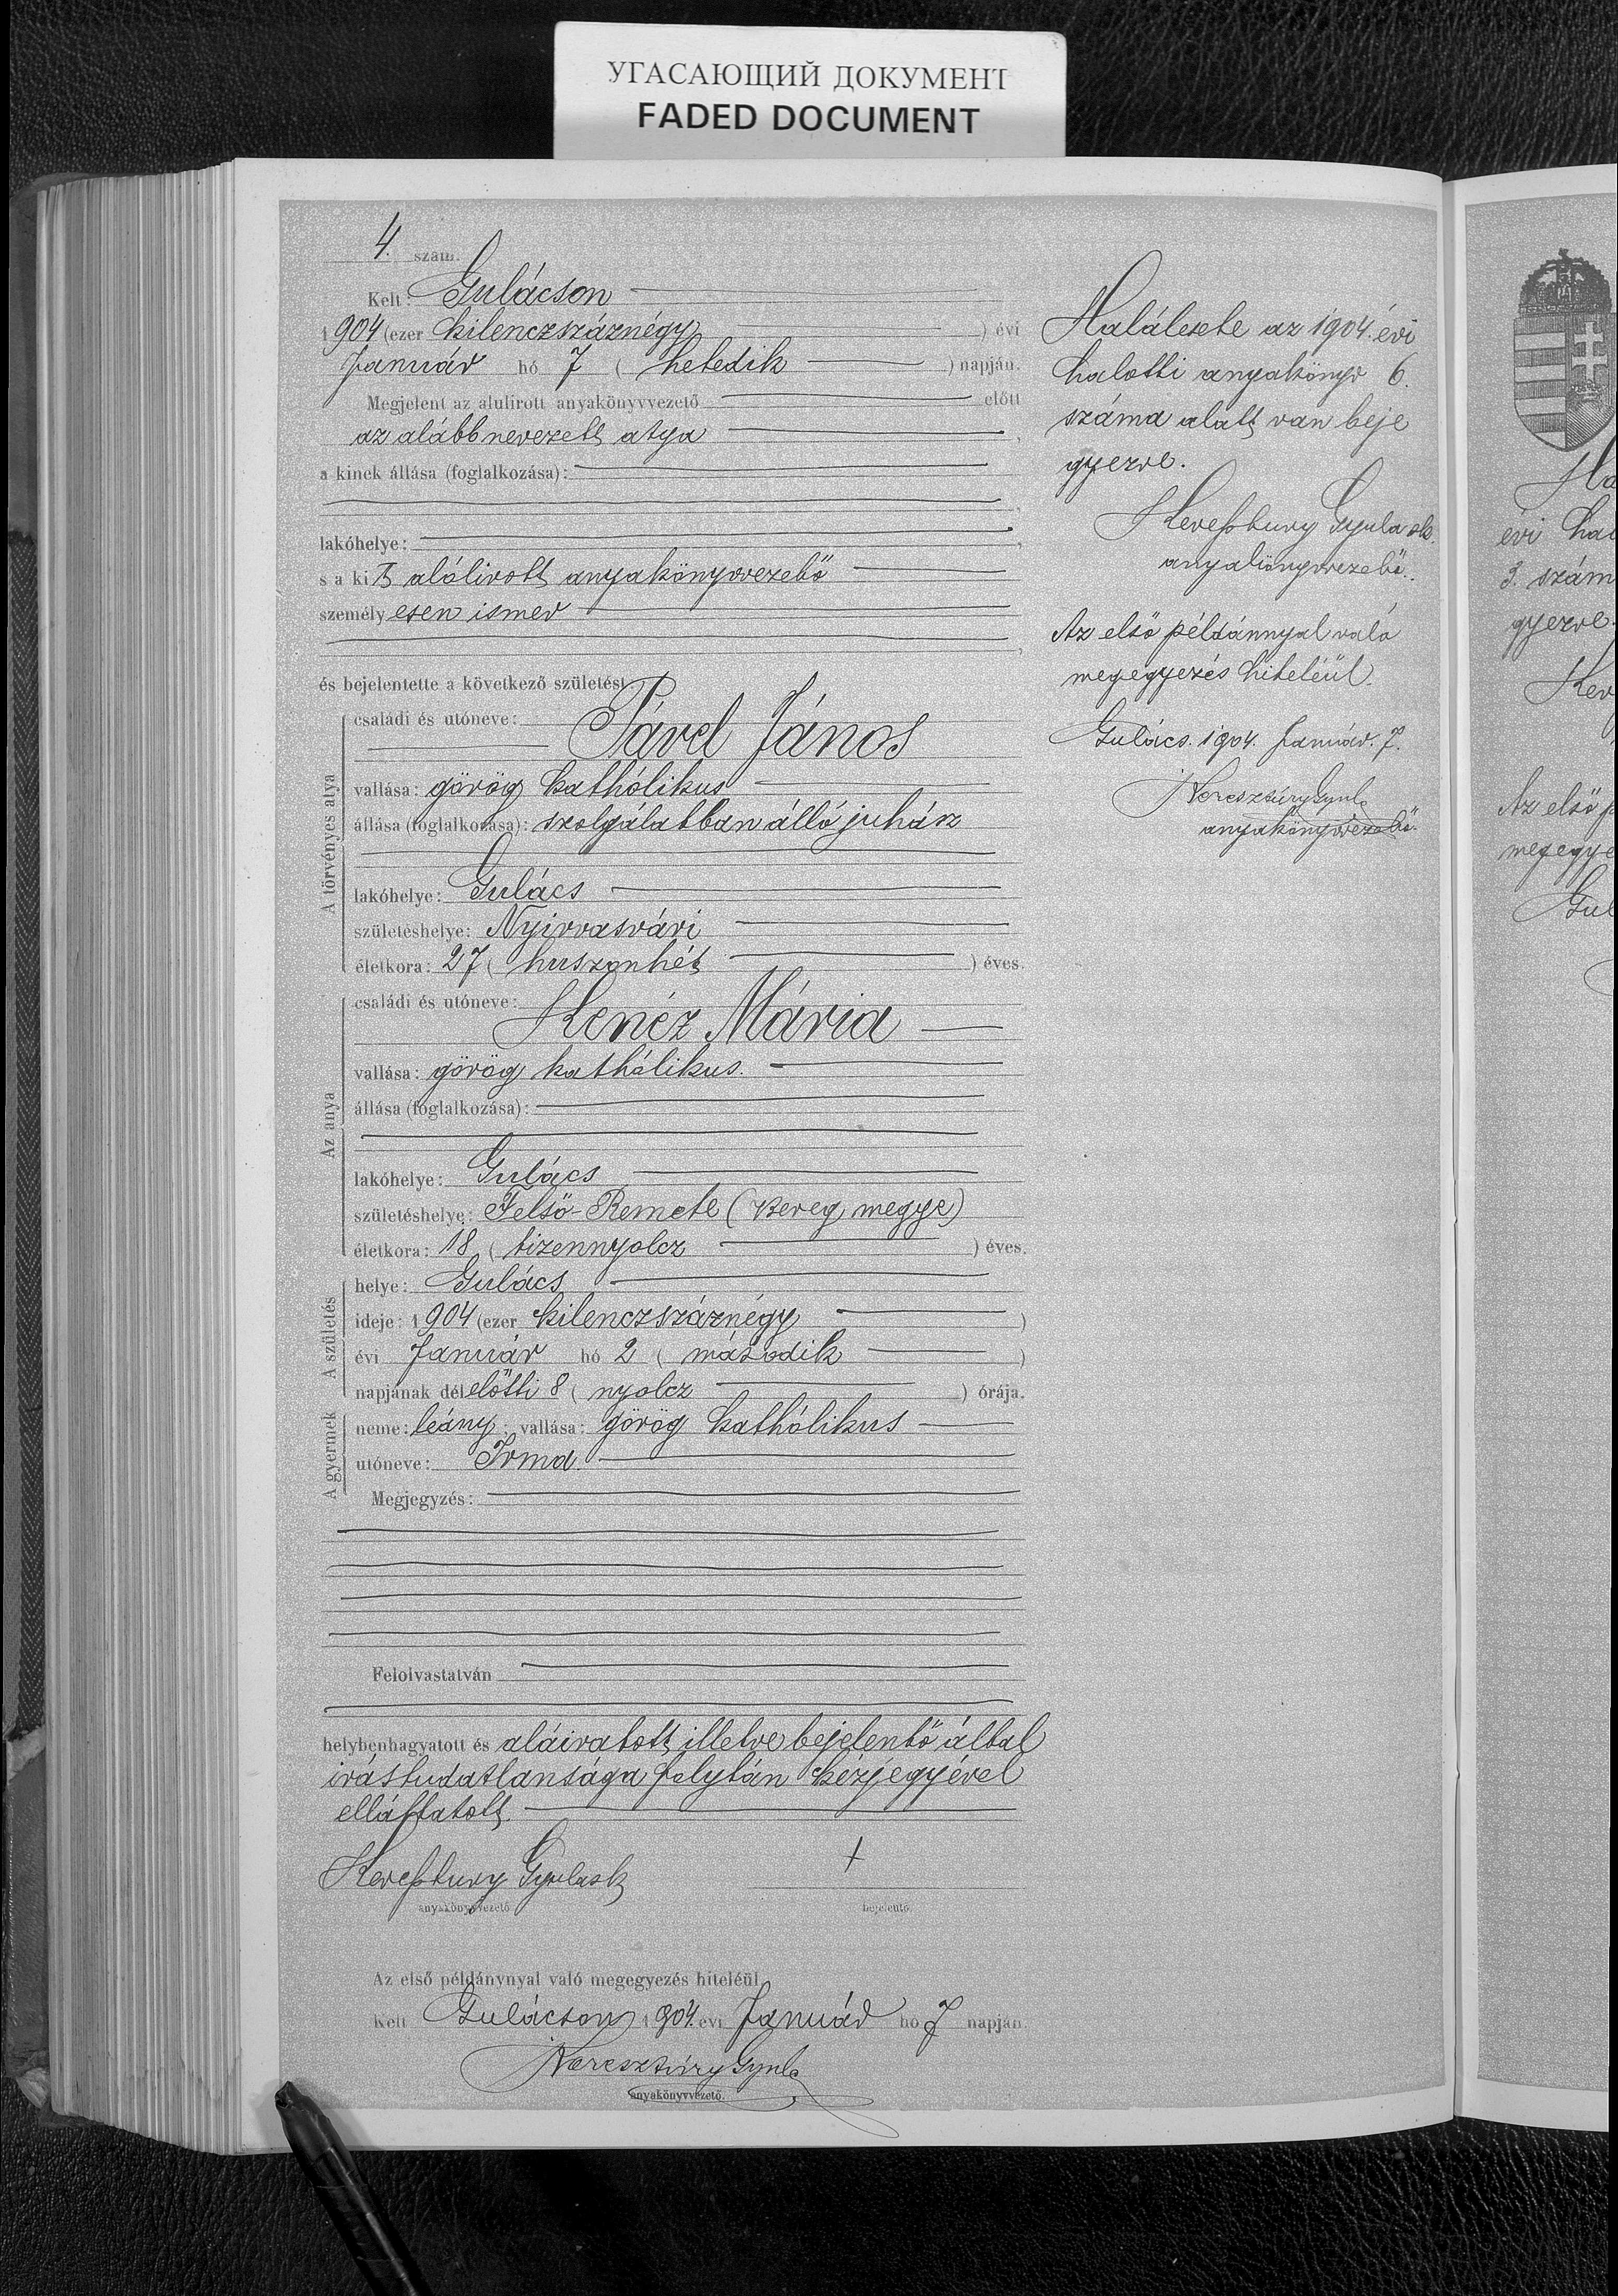 УГАСАЮЩИЙ ДОКУМЕНТ
FADED DOCUMENT
4. szám.
Kelt: Gulácson
1904 (ezer kilenczszáznégy ) évi
Január hó 7 ( hetedik ) napján.
Megjelent az alulirott anyakönyvvezető előtt
az alább nevezett atya ,
a kinek állása (foglalkozása):
lakóhelye: ,
s a kit alólirott anyakönyvvezető
személyesen ismer
és bejelentette a következő születést
A törvényes atya
családi és utóneve:
Pável János
vallása: görög kathólikus
állása (foglalkozása): szolgálatban álló juhász
lakóhelye: Gulács
születéshelye: Nyirvasvári
életkora: 27 ( huszonhét ) éves.
Az anya
családi és utóneve:
Kenéz Mária
vallása: görög kathólikus.
állása (foglalkozása):
lakóhelye: Gulács
születéshelye: Felső-Remete (Bereg megye)
életkora: 18 ( tizennyolcz ) éves.
A születés
helye: Gulács
ideje: 1904 (ezer kilenczszáznégy )
évi Január hó 2 ( második )
napjának délelőtti 8 ( nyolcz ) órája.
A gyermek
neme: leány; vallása: görög kathólikus
utóneve: Irma.
Megjegyzés:
Felolvastatván
helybenhagyatott és aláiratott illetve bejelentő által
irástudatlansága folytán kézjegyével
elláttatott.
Keresztury Gyula sk +
anyakönyvvezető bejelentő
Az első példánynyal való megegyezés hiteléül
Kelt Gulácson 1904. évi Január hó 7 napján
Keresztúry Gyula
anyakönyvvezető.
Halálesete az 1904. évi
halotti anyakönyv 6.
száma alatt van beje
gyezve.
Keresztury Gyula sk.
anyakönyvvezető.
Az első példánnyal való
megegyezés hiteléül.
Gulács. 1904. Január. 7.
Keresztúry Gyula
anyakönyvvezető.
Ha
évi hal
3. szám
gyezve.
Ker
Az első p
megegye
Gul